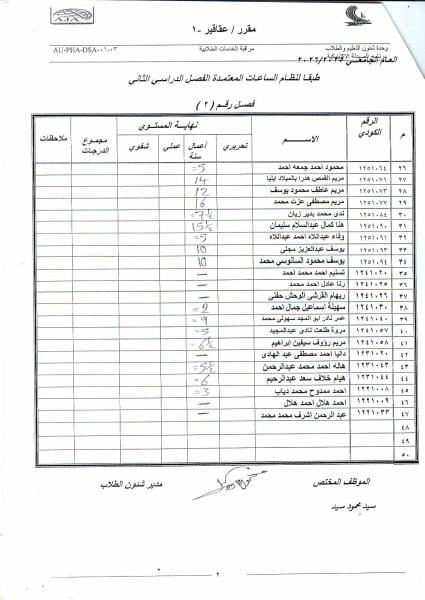 مقرر / عقاقير -١
A.I.A
AU-PHA-DSA-٠٠١-٠٣
مراقبة الخدمات الطلابية
وحدة شئون التعليم والطلاب
طبقا لنظام الساعات المعتمدة الفصل الدراسى الثانى
فصل رقم ( ٢ )
م الرقم الكودي الاســـم نهاية المستوي مجموع الدرجات ملاحظات
تحريري أعمال سنة عملي شفوي
٢٦ ١٢٥١٠٦٤ محمود احمد جمعه احمد 5=
٢٧ ١٢٥١٠٧١ مريم القمص هدرا بالميلاد ايليا 14
٢٨ ١٢٥١٠٧٣ مريم عاطف محمود يوسف 12
٢٩ ١٢٥١٠٧٧ مريم مصطفى عزت محمد 16
٣٠ ١٢٥١٠٨٤ ندى محمد بدير زيان =7½
٣١ ١٢٥١٠٩٠ هنا كمال عبدالسلام سليمان 15½
٣٢ ١٢٥١٠٩١ وفاء عبداللاه احمد عبداللاه =5
٣٣ ١٢٥١٠٩٣ يوسف عبدالعزيز مجلى 10
٣٤ ١٢٥١٠٩٤ يوسف محمود السانوسي محمد 10
٣٥ ١٢٤١٠٢٠ تسنيم احمد محمد احمد —
٣٦ ١٢٤١٠٢٥ رنا عادل احمد محمد —
٣٧ ١٢٤١٠٢٦ ريهام القرشى الوحش حفنى —
٣٨ ١٢٤١٠٣٠ سهيلة اسماعيل جمال احمد =2
٣٩ ١٢٤١٠٤٠ عمر نادر ابو المجد سهولى محمد =9
٤٠ ١٢٤١٠٥٧ مروة طلعت نادى عبدالمجيد =5
٤١ ١٢٤١٠٥٨ مريم رؤوف سيفين ابراهيم =6½
٤٢ ١٢٣١٠٢٠ داليا احمد مصطفى عبد الهادى —
٤٣ ١٢٣١٠٤٣ هاله احمد محمد عبدالرحمن =5½
٤٤ ١٢٣١٠٤٤ هيام خلاف سعد عبدالرحيم =6
٤٥ ١٢٢١٠٠٨ احمد ممدوح محمد دياب =3
٤٦ ١٢٢١٠٠٩ احمد هلال احمد هلال —
٤٧ ١٢٢١٠٣٣ عبد الرحمن اشرف محمد محمد —
٤٨
٤٩
٥٠
الموظف المختص
مدير شئون الطلاب
سيد محمود سيد
٢